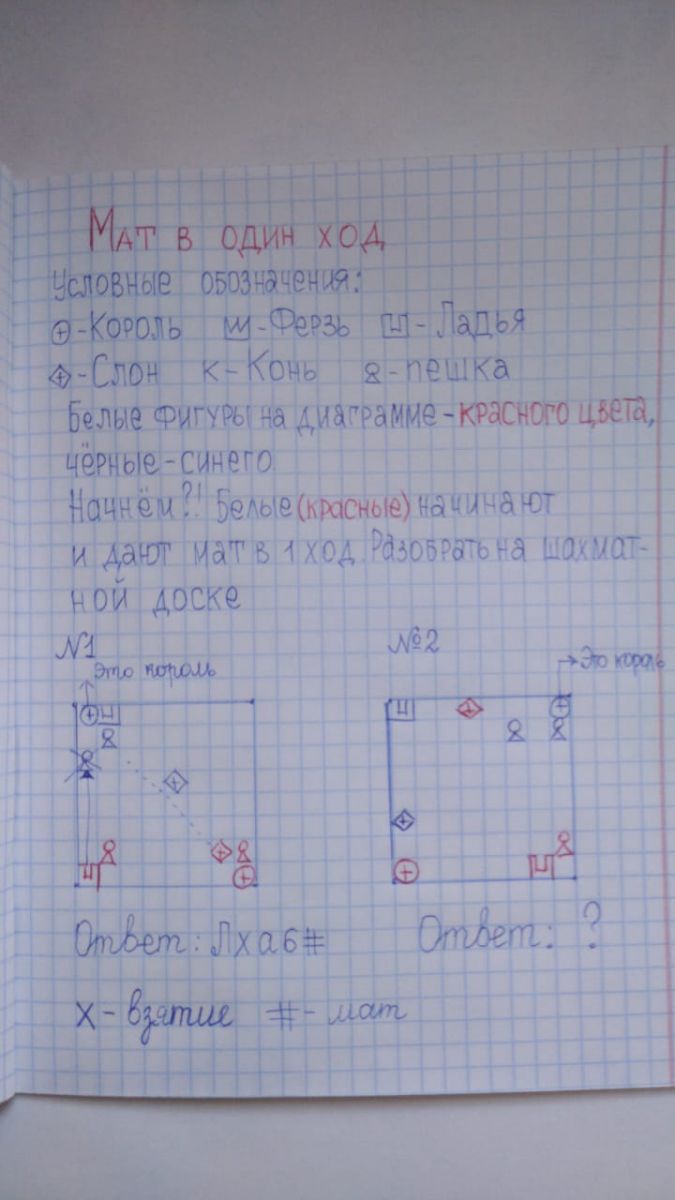 Мат в один ход
Условные обозначения:
-Король -Ферзь -Ладья
-Слон К-Конь -пешка
Белые фигуры на диаграмме-красного цвета,
чёрные-синего.
Начнём?! Белые (красные) начинают
и дают мат в 1 ход. Разобрать на шахмат-
ной доске
№1 №2
Это король Это король
Ответ: Лxa6# Ответ: ?
x-взятие #-мат